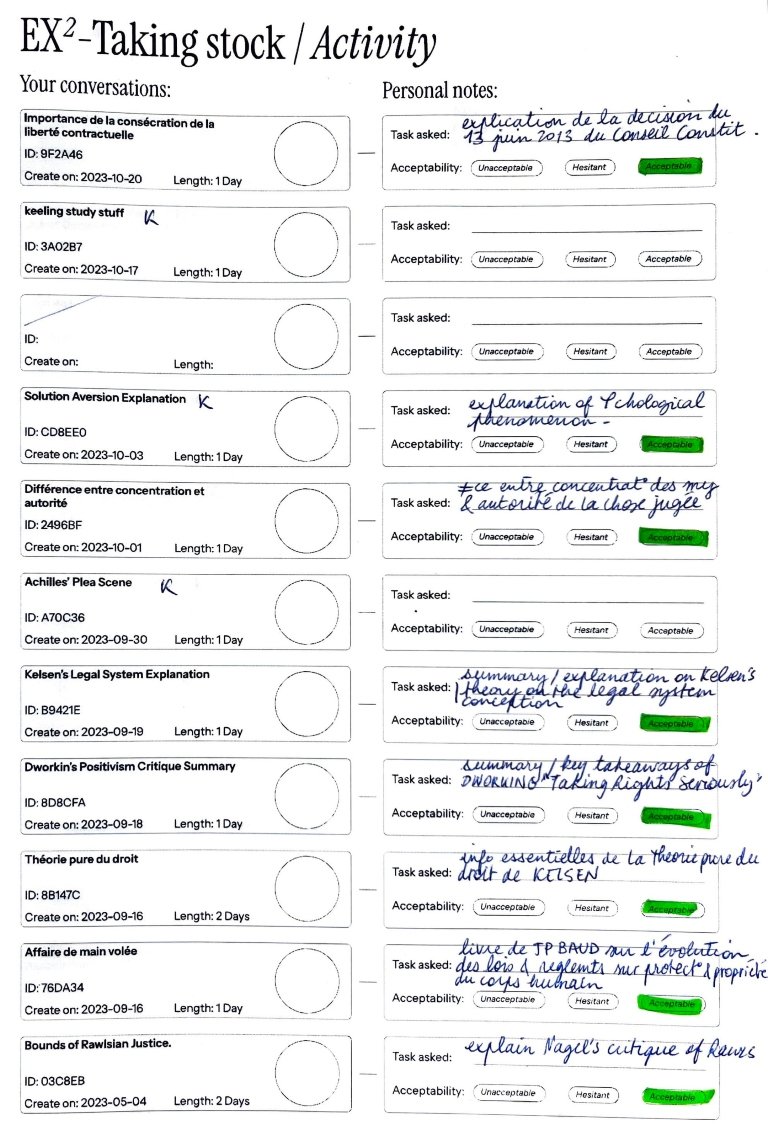 EX²-Taking stock / Activity
Your conversations:
Personal notes:
Importance de la consécration de la
liberté contractuelle
ID: 9F2A46
Create on: 2023-10-20 Length: 1 Day
explication de la décision du
Task asked: 13 juin 2013 du Conseil Constit.
Acceptability: Unacceptable Hesitant Acceptable
keeling study stuff K
ID: 3A02B7
Create on: 2023-10-17 Length: 1 Day
Task asked:
Acceptability: Unacceptable Hesitant Acceptable
ID:
Create on: Length:
Task asked:
Acceptability: Unacceptable Hesitant Acceptable
Solution Aversion Explanation K
ID: CD8EE0
Create on: 2023-10-03 Length: 1 Day
explanation of Ychological
Task asked: phenomenon -
Acceptability: Unacceptable Hesitant Acceptable
Différence entre concentration et
autorité
ID: 2496BF
Create on: 2023-10-01 Length: 1 Day
≠ce entre concentrat° des
Task asked: & autorité de la chose jugée
Acceptability: Unacceptable Hesitant Acceptable
Achilles' Plea Scene K
ID: A70C36
Create on: 2023-09-30 Length: 1 Day
Task asked:
Acceptability: Unacceptable Hesitant Acceptable
Kelsen's Legal System Explanation
ID: B9421E
Create on: 2023-09-19 Length: 1 Day
summary / explanation on Kelsen's
Task asked: theory on the legal system
conception
Acceptability: Unacceptable Hesitant Acceptable
Dworkin's Positivism Critique Summary
ID: 8D8CFA
Create on: 2023-09-18 Length: 1 Day
summary / key takeaways of
Task asked: DWORKING "Taking Rights Seriously"
Acceptability: Unacceptable Hesitant Acceptable
Théorie pure du droit
ID: 8B147C
Create on: 2023-09-16 Length: 2 Days
info essentielles de la theorie pure du
Task asked: droit de KELSEN
Acceptability: Unacceptable Hesitant Acceptable
Affaire de main volée
ID: 76DA34
Create on: 2023-09-16 Length: 1 Day
livre de JP BAUD sur l'évolution
Task asked: des lois & reglemts sur protect° & propriété
du corps humain
Acceptability: Unacceptable Hesitant Acceptable
Bounds of Rawlsian Justice.
ID: 03C8EB
Create on: 2023-05-04 Length: 2 Days
Task asked: explain Nagel's critique of Rawls
Acceptability: Unacceptable Hesitant Acceptable